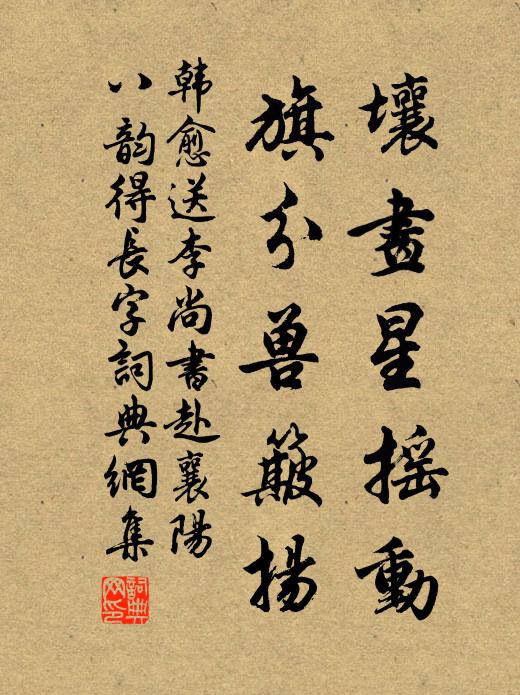 壤畫星摇動
旗分兽簸揚
韩愈送李尚書赴襄陽
八韵得長字詞典網集
詞典网印